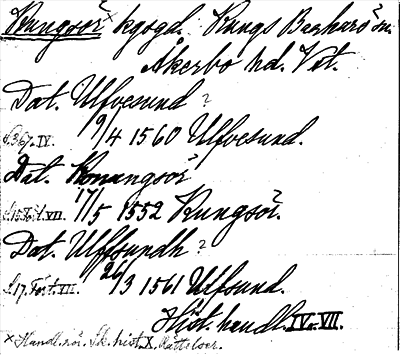 Kungsör x kgsgd. Kungs Barkarö sn.
Åkerbo hd. Vst.
Dat. Ulfvesund ?
s. 367. IV. 9/4 1560 Ulfvesund.
Dat. Konungsör
17/5 1552 Kungsör.
Dat. Ulffsundh ?
s. 17. Fört. VII. 26/3 1561 Ulfsund.
Hist. handl. IV. VII.
x Handl. rör. Sk. hist. X.